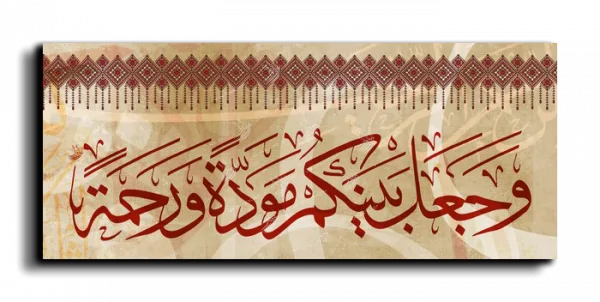 وَجَعَلَ بَيْنَكُمْ مَوَدَّةً وَرَحْمَةً